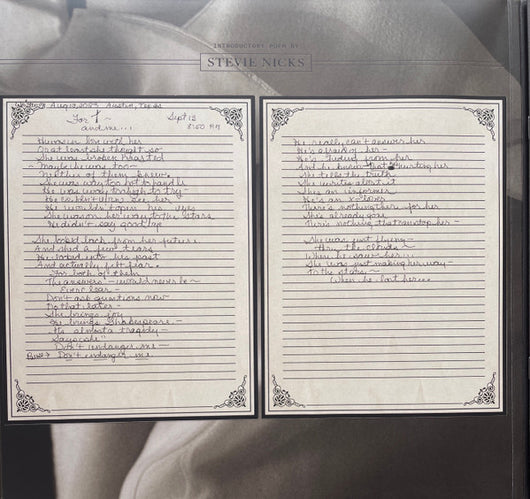 INTRODUCTORY POEM BY
STEVIE NICKS
Aug 13, 2023 Austin, Texas
For T ~
and me...!
Sept 13
8:50 PM
He was in love with her
Or at least she thought so
She was broken hearted
~ Maybe he was too ~
Neither of them knew.
She was way too hot to handle
He was way too high to try
He couldn't even see her
He wouldn't open his eyes
She was on her way to the stars
He didn't say goodbye
She looked back from her future
And shed a few tears
He looked into his past
And actually felt fear
For both of them
The answers ~ would never be ~
Ever clear -
Don't ask questions now
Do that later -
She brings joy
He brings Shakespeare -
It's almost a tragedy -
Says she "
Don't endanger me ~
Don't endanger me
He really can't answer her
He's afraid of her -
He's hiding from her
And he knows that he's hurting her
She tells the truth
She writes about it
She's an informer
He's an ex-lover
There's nothing there for her
She's already gone
There's nothing that can stop her -
She was just flying -
thru the clouds ~
When he saw her...
She was just making her way -
to the stars ~
When he lost her...